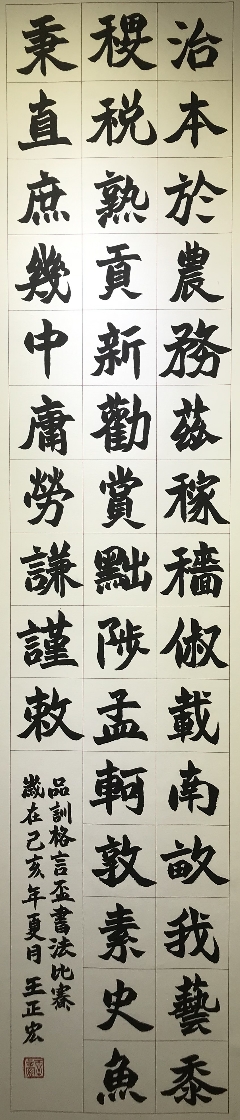 治本於農務茲稼穡俶載南畝我藝黍
稷稅熟貢新勸賞黜陟孟軻敦素史魚
秉直庶幾中庸勞謙謹敕
品訓格言盃書法比賽
歲在己亥年夏月王正宏